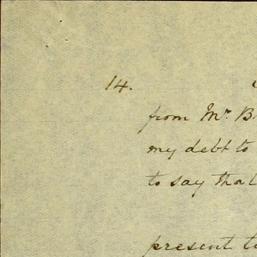 14.
from Mr. B
my debt to
to say that
present to